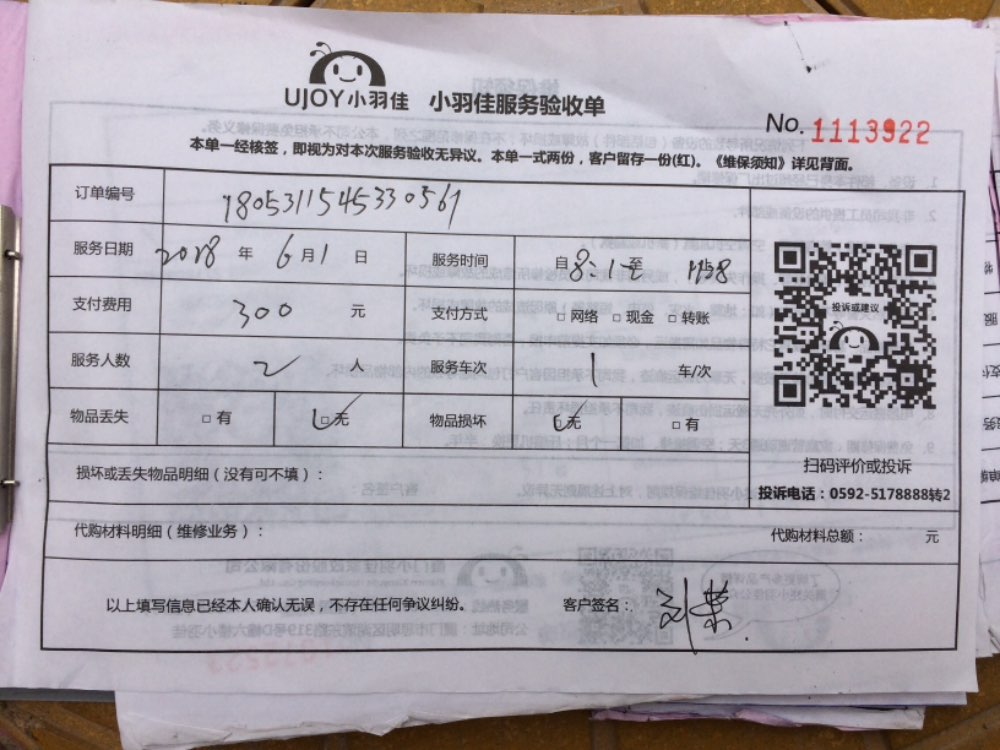 UJOY小羽佳 小羽佳服务验收单
No. 1113922
本单一经核签，即视为对本次服务验收无异议。本单一式两份，客户留存一份(红)。《维保须知》详见背面。
订单编号 1805311545330561
服务日期 2018 年 6 月 1 日 服务时间 自 8:1 至 11:38
支付费用 300 元 支付方式 □ 网络 □ 现金 □ 转账
服务人数 2 人 服务车次 1 车/次
物品丢失 □ 有 ☑ 无 物品损坏 ☑ 无 □ 有
投诉或建议
扫码评价或投诉
投诉电话：0592-5178888转2
损坏或丢失物品明细（没有可不填）：
代购材料明细（维修业务）： 代购材料总额： 元
以上填写信息已经本人确认无误，不存在任何争议纠纷。 客户签名：刘荣